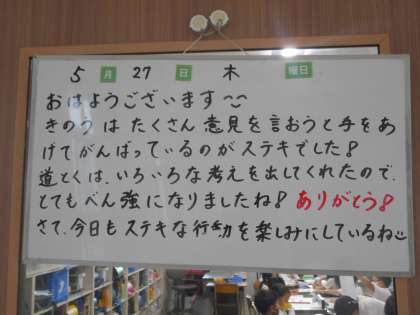 5月27日 木曜日
おはようございます
きのうはたくさん意見を言おうと手をあ
げてがんばっているのがステキでした!
道とくは、いろいろな考えを出してくれたので、
とてもべん強になりましたね! ありがとう!
さて、今日もステキな行動を楽しみにしているね